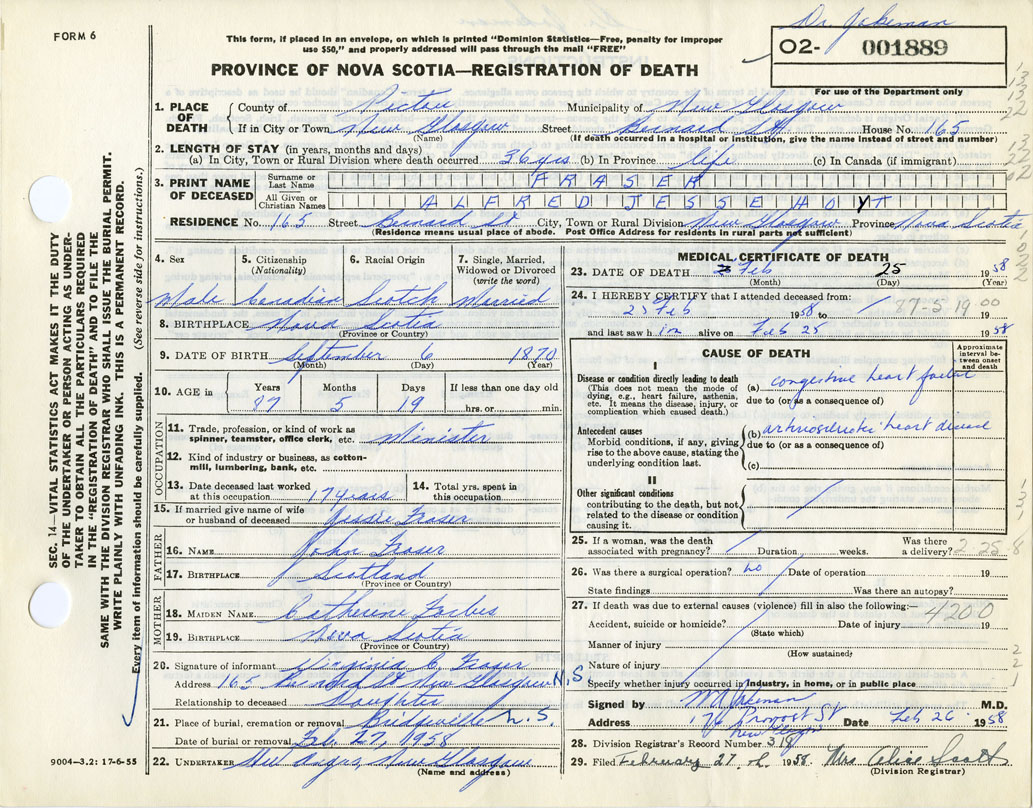 Dr. Jakeman
FORM 6
This form, if placed in an envelope, on which is printed "Dominion Statistics—Free, penalty for improper
use $50," and properly addressed will pass through the mail "FREE"
02- 001889
PROVINCE OF NOVA SCOTIA—REGISTRATION OF DEATH
For use of the Department only
1. PLACE OF DEATH
County of Pictou Municipality of New Glasgow
If in City or Town New Glasgow Street Bernard St House No. 165
(Name) (If death occurred in a hospital or institution, give the name instead of street and number)
2. LENGTH OF STAY (in years, months and days)
(a) In City, Town or Rural Division where death occurred 36 yrs (b) In Province life (c) In Canada (if immigrant)
3. PRINT NAME OF DECEASED
Surname or Last Name FRASER
All Given or Christian Names ALFRED JESSE HOYT
RESIDENCE No. 165 Street Bernard St City, Town or Rural Division New Glasgow Province Nova Scotia
(Residence means usual place of abode. Post Office Address for residents in rural parts not sufficient)
SEC. 14—VITAL STATISTICS ACT MAKES IT THE DUTY
OF THE UNDERTAKER OR PERSON ACTING AS UNDER-
TAKER TO OBTAIN ALL THE PARTICULARS REQUIRED
IN THE "REGISTRATION OF DEATH" AND TO FILE THE
SAME WITH THE DIVISION REGISTRAR WHO SHALL ISSUE THE BURIAL PERMIT.
WRITE PLAINLY WITH UNFADING INK. THIS IS A PERMANENT RECORD.
Every item of information should be carefully supplied. (See reverse side for instructions.)
4. Sex
Male
5. Citizenship
(Nationality)
Canadian
6. Racial Origin
Scotch
7. Single, Married,
Widowed or Divorced
(write the word)
Married
8. BIRTHPLACE Nova Scotia
(Province or Country)
9. DATE OF BIRTH September 6 1870
(Month) (Day) (Year)
10. AGE in Years Months Days If less than one day old
87 5 19 hrs. or min.
OCCUPATION
11. Trade, profession, or kind of work as
spinner, teamster, office clerk, etc. Minister
12. Kind of industry or business, as cotton-
mill, lumbering, bank, etc.
13. Date deceased last worked
at this occupation 17 years
14. Total yrs. spent in
this occupation
15. If married give name of wife
or husband of deceased Jessie Fraser
FATHER
16. NAME John Fraser
17. BIRTHPLACE Scotland
(Province or Country)
MOTHER
18. MAIDEN NAME Catherine Forbes
19. BIRTHPLACE Nova Scotia
(Province or Country)
20. Signature of informant Virginia C. Fraser
Address 165 Bernard St New Glasgow N.S.
Relationship to deceased Daughter
21. Place of burial, cremation or removal Bridgeville N.S.
Date of burial or removal Feb. 27, 1958
22. UNDERTAKER New Glasgow
(Name and address)
9004—3.2: 17-6-55
MEDICAL CERTIFICATE OF DEATH
23. DATE OF DEATH Feb 25 1958
(Month) (Day) (Year)
24. I HEREBY CERTIFY that I attended deceased from:
25 Feb 1958 to 19
87-5 19 00
and last saw him alive on Feb 25 1958
CAUSE OF DEATH
Approximate
interval be-
tween onset
and death
I
Disease or condition directly leading to death
(This does not mean the mode of
dying, e.g., heart failure, asthenia,
etc. It means the disease, injury, or
complication which caused death.)
(a) congestive heart failure
due to (or as a consequence of)
Antecedent causes
Morbid conditions, if any, giving
rise to the above cause, stating the
underlying condition last.
(b) arteriosclerotic heart disease
due to (or as a consequence of)
(c)
II
Other significant conditions
contributing to the death, but not
related to the disease or condition
causing it.
25. If a woman, was the death
associated with pregnancy? Duration weeks. Was there
a delivery?
2 25-8
26. Was there a surgical operation? no Date of operation 19
State findings Was there an autopsy?
27. If death was due to external causes (violence) fill in also the following:—
4200
Accident, suicide or homicide? Date of injury 19
(State which)
Manner of injury
(How sustained)
Nature of injury
Specify whether injury occurred in industry, in home, or in public place
Signed by M Jakeman M.D.
Address Provost St Date Feb 26 1958
New Glasgow
28. Division Registrar's Record Number 318
29. Filed February 27 1958 Mrs Alice Scott
(Division Registrar)